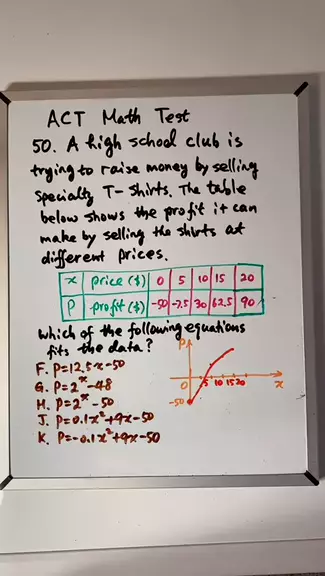 ACT Math Test
50. A high school club is
trying to raise money by selling
specialty T-shirts. The table
below shows the profit it can
make by selling the shirts at
different prices.
x price ($) 0 5 10 15 20
P profit ($) -50 -7.5 30 62.5 90
which of the following equations
fits the data?
F. P=12.5x-50
G. P=2ˣ-48
H. P=2ˣ-50
J. P=0.1x²+9x-50
K. P=-0.1x²+9x-50
P
0 5 10 15 20 x
-50